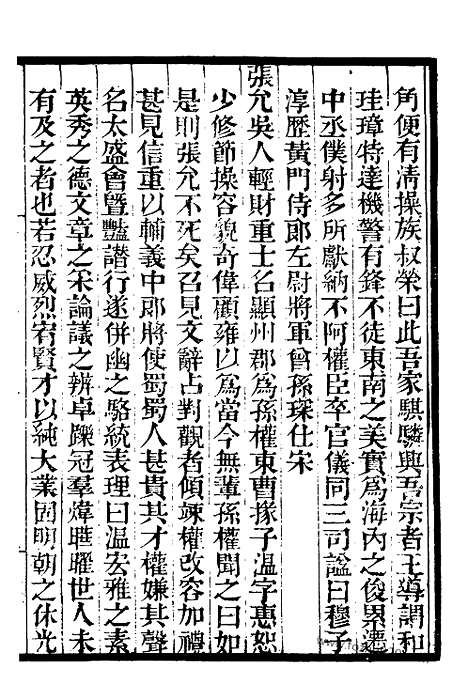 角便有清操族叔榮曰此吾家騏驎興吾宗者王導謂和
珪璋特達機警有鋒不徒東南之美實為海內之俊累遷
中丞僕射多所獻納不阿權臣卒官儀同三司謚曰穆子
淳歷黃門侍郎左尉將軍曾孫琛仕宋
張允吳人輕財重士名顯州郡為孫權東曹掾子溫字惠恕
少修節操容貌奇偉顧雍以為當今無輩孫權聞之曰如
是則張允不死矣召見文辭占對觀者傾竦權改容加禮
甚見信重以輔義中郎將使蜀蜀人甚貴其才權嫌其聲
名太盛會暨豔譖行遂併幽之駱統表理曰溫宏雅之素
英秀之德文章之采論議之辨卓躒冠羣煒曄曜世人未
有及之者也若忍威烈宥賢才以純大業固明朝之休光